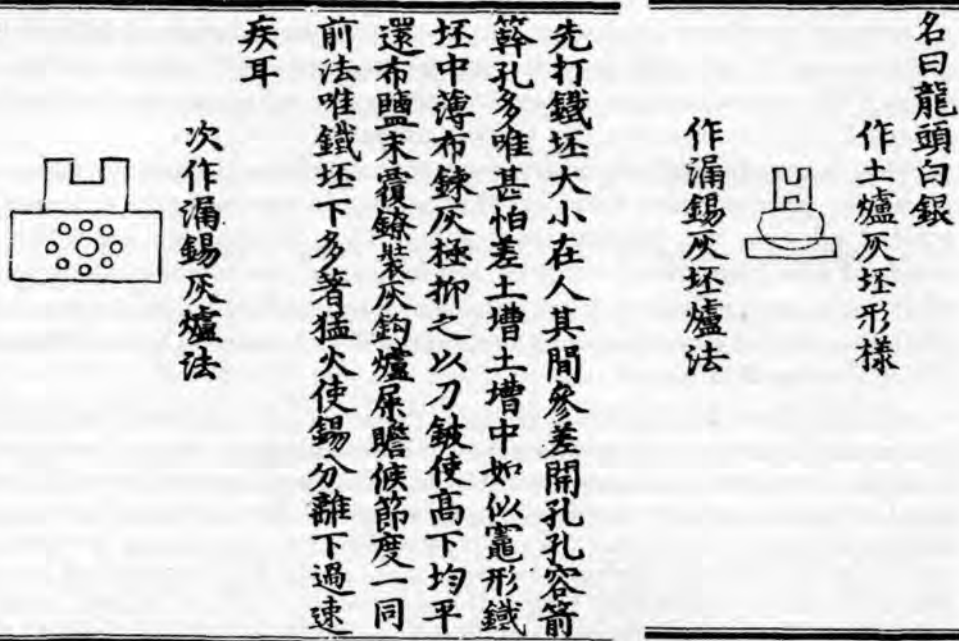 名曰龍頭白銀
作土爐灰坯形樣
作漏錫灰坯爐法
先打鐵坯大小在人其間參差開孔孔容箭
簳孔多唯甚怕差土墤土墤中如似竈形鐵
坯中薄布鍊灰極抑之以刀鈹使高下均平
還布鹽末覆鐐裝灰鈎爐屎瞻候節度一同
前法唯鐵坯下多著猛火使錫分離下過速
疾耳
次作漏錫灰爐法